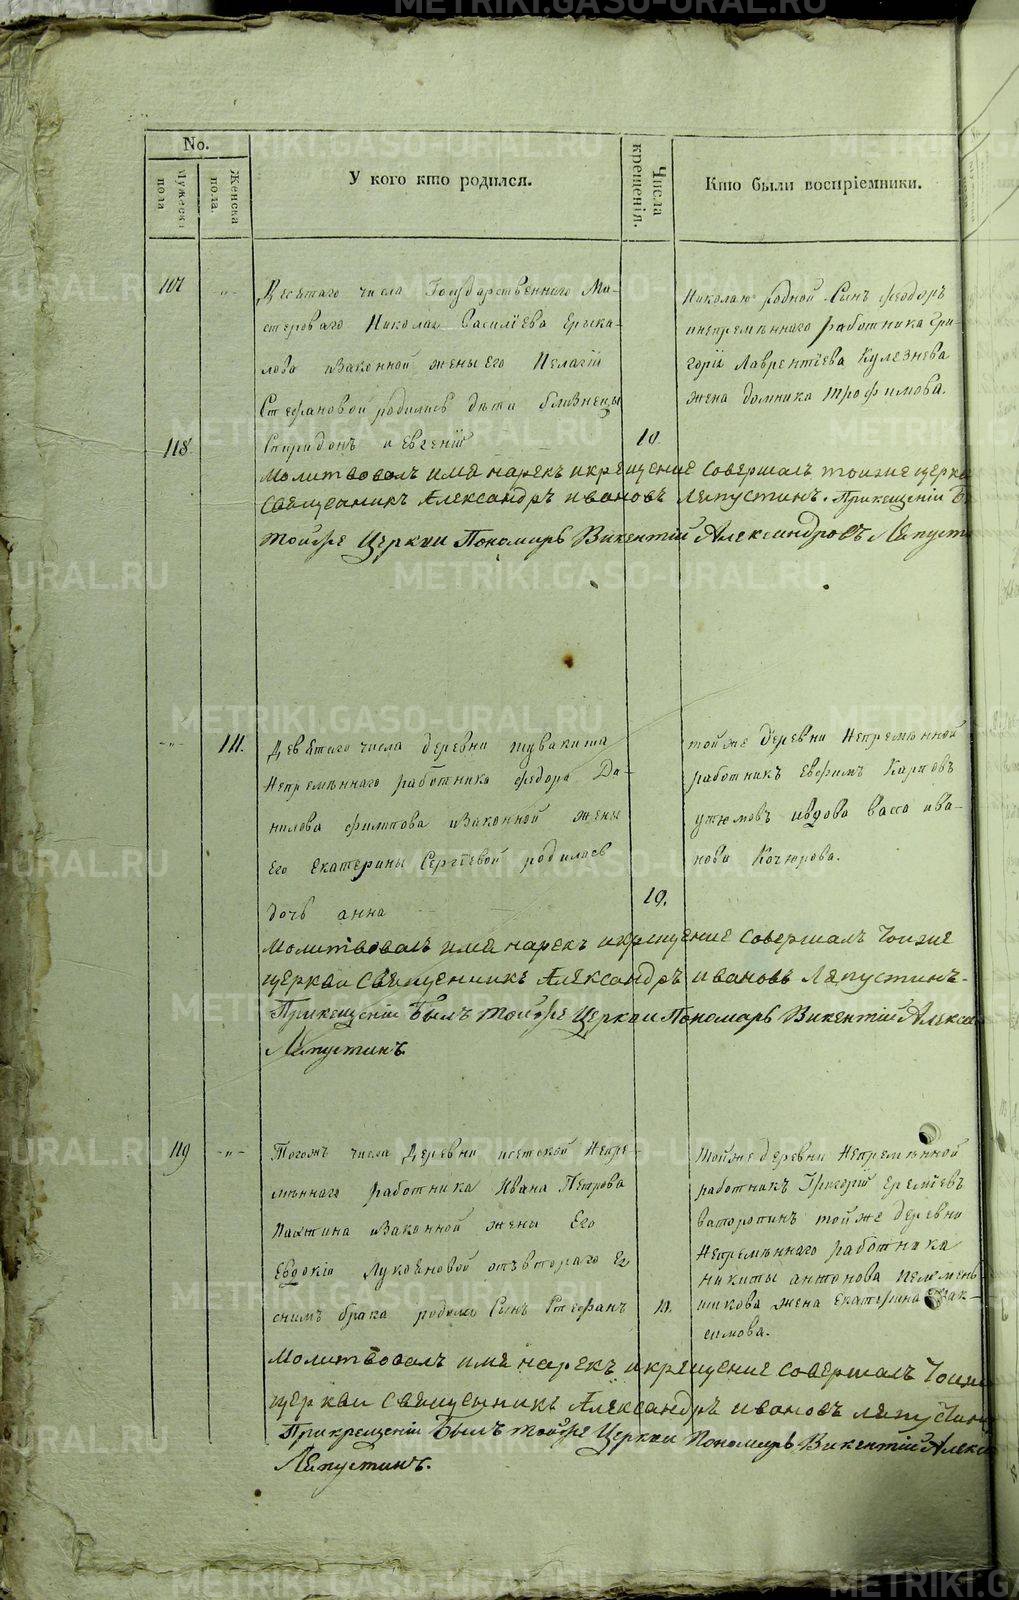 METRIKI.GASO-URAL.RU
No.
Мужеска пола
Женска пола.
У кого кто родился.
Числа крещенія.
Кто были воспріемники.
Десятаго числа Государственнаго Ма-
стероваго Николая Василіева Ерыка-
лова изаконной жены его Пелагіи
Стефановой родились дѣти близнецы
118 Спиридонъ и Евгеній 10.
Николаю родной Сынъ Феодоръ
инепремѣннаго работника Гри-
горіи Лаврентіева Кулезнева
жена домника трофимова.
Молитвовалъ имя нарекъ и крещение совершалъ тоиже церкви
священникъ Александръ ивановъ Ляпустинъ. Прикещеніи
тойже Церкви Пономарь Викентій Александровъ Ляпуст
-"- 111. Девятаго числа деревни шувакиша
Непремѣннаго работника Федора Да-
нилова филипова изаконной жены
Его Екатерины Сергіевой родилась
дочь анна 10.
тойже деревни Непремѣнной
работникъ Евфимъ Карповъ
утюмовъ ивдова васса ива-
нова Кочюрова.
Молитвовалъ имя нарекъ икрещение совершалъ тоиже
церкви священникъ Александръ ивановъ Ляпустинъ.
Прикещеніи былъ тойже Церкви Пономарь Викентій Алекса
Ляпустинъ
119 -"- Тогожъ числа Деревни исетской Непре-
мѣннаго работника Ивана Петрова
Пахтина изаконной жены Его
Евдокіи Лукояновой отъвтораго Ея
снимъ брака родился Сынъ Стефанъ 11.
тойже деревни Непремѣнной
работникъ Григорій Еремѣевъ
ваторопинъ тойже деревни
Непремѣннаго работника
никиты антонова пельмень-
щикова жена Екатерина Мак-
симова.
Молитвовалъ имя нарекъ икрещение совершалъ тоиже
церкви священникъ Александръ ивановъ ляпустинъ
Прикрещеніи былъ тойже Церкви Пономарь Викентій Алекса
Ляпустинъ.